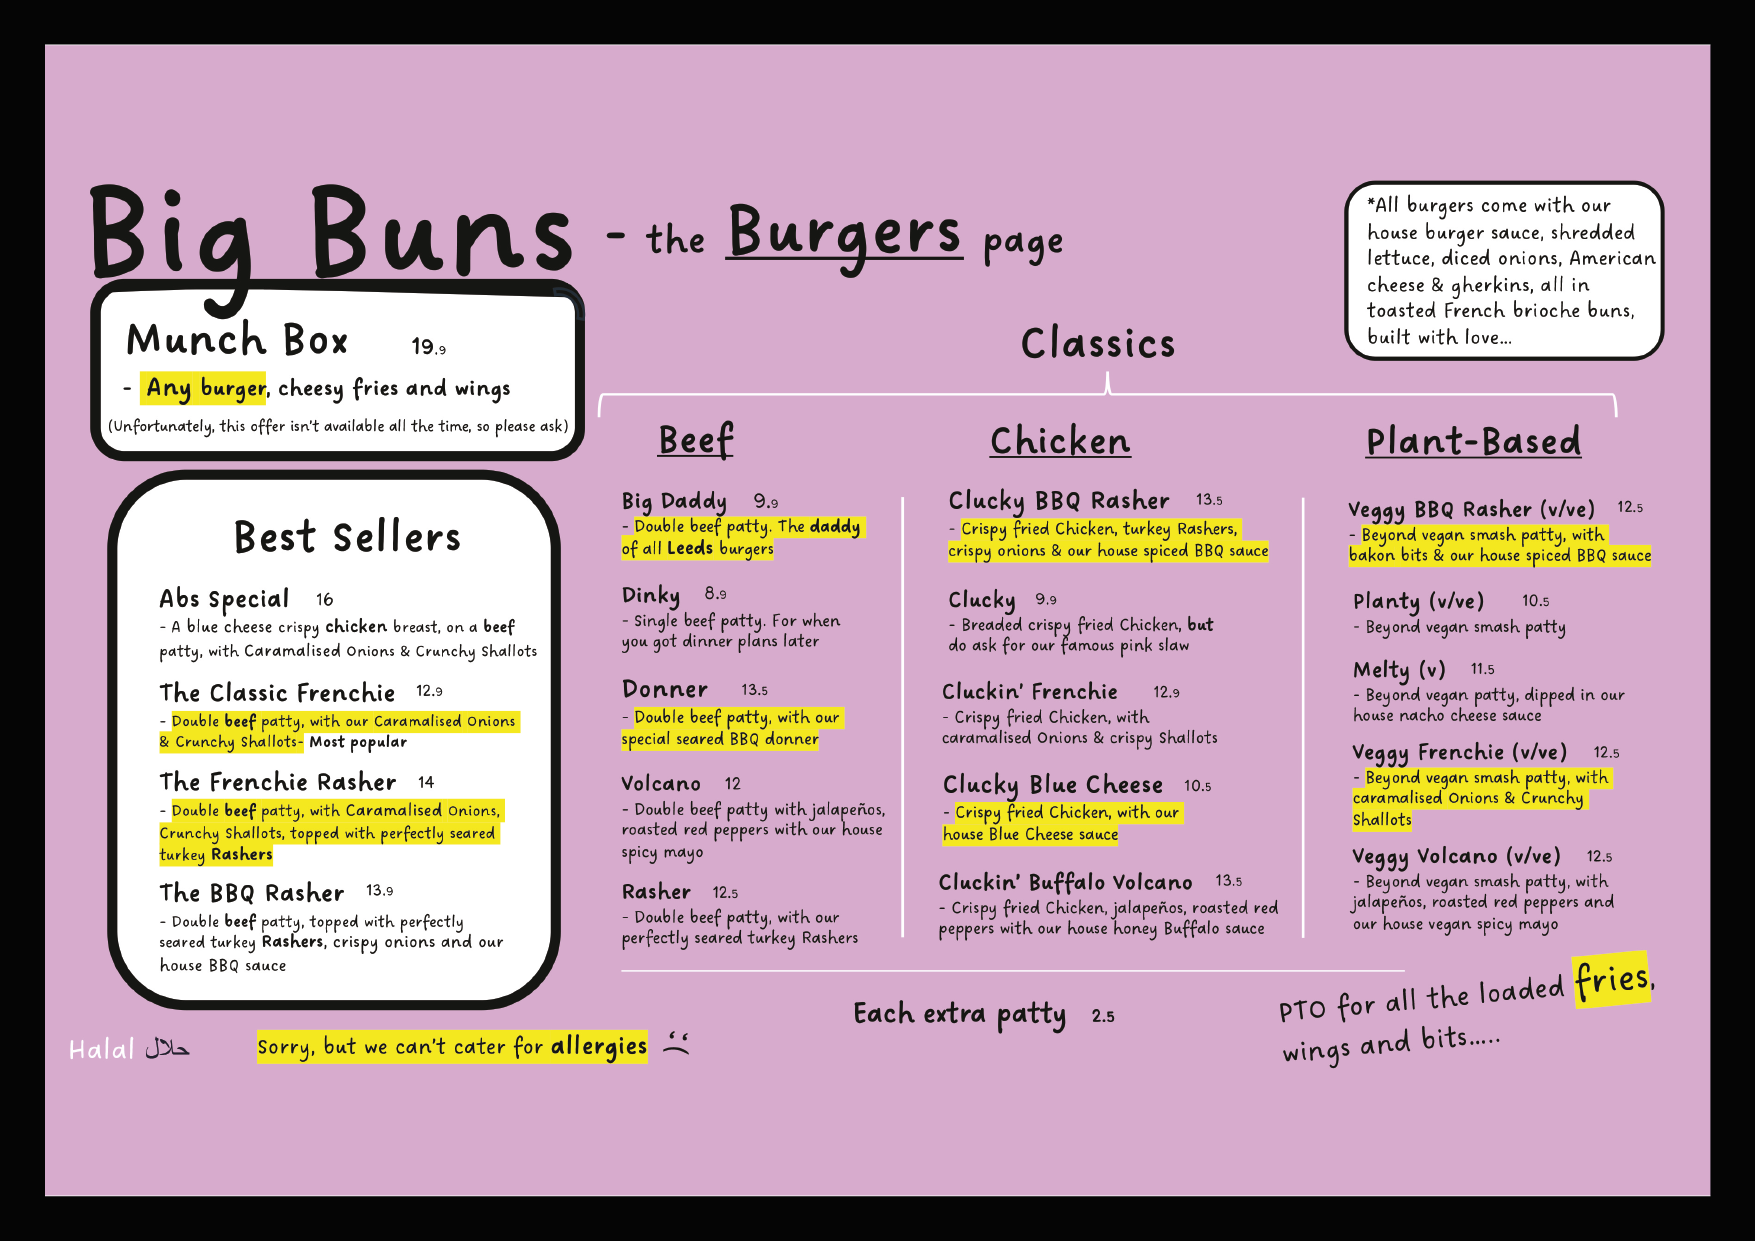 Big Buns - the Burgers page
*All burgers come with our
house burger sauce, shredded
lettuce, diced onions, American
cheese & gherkins, all in
toasted French brioche buns,
built with love...
Munch Box 19.9
- Any burger, cheesy fries and wings
(Unfortunately, this offer isn't available all the time, so please ask)
Best Sellers
Abs Special 16
- A blue cheese crispy chicken breast, on a beef
patty, with Caramalised Onions & Crunchy Shallots
The Classic Frenchie 12.9
- Double beef patty, with our Caramalised Onions
& Crunchy Shallots- Most popular
The Frenchie Rasher 14
- Double beef patty, with Caramalised Onions,
Crunchy Shallots, topped with perfectly seared
turkey Rashers
The BBQ Rasher 13.9
- Double beef patty, topped with perfectly
seared turkey Rashers, crispy onions and our
house BBQ sauce
Classics
Beef
Big Daddy 9.9
- Double beef patty. The daddy
of all Leeds burgers
Dinky 8.9
- Single beef patty. For when
you got dinner plans later
Donner 13.5
- Double beef patty, with our
special seared BBQ donner
Volcano 12
- Double beef patty with jalapeños,
roasted red peppers with our house
spicy mayo
Rasher 12.5
- Double beef patty, with our
perfectly seared turkey Rashers
Chicken
Clucky BBQ Rasher 13.5
- Crispy fried Chicken, turkey Rashers,
crispy onions & our house spiced BBQ sauce
Clucky 9.9
- Breaded crispy fried Chicken, but
do ask for our famous pink slaw
Cluckin' Frenchie 12.9
- Crispy fried Chicken, with
caramalised Onions & crispy Shallots
Clucky Blue Cheese 10.5
- Crispy fried Chicken, with our
house Blue Cheese sauce
Cluckin' Buffalo Volcano 13.5
- Crispy fried Chicken, jalapeños, roasted red
peppers with our house honey Buffalo sauce
Plant-Based
Veggy BBQ Rasher (v/ve) 12.5
- Beyond vegan smash patty, with
bakon bits & our house spiced BBQ sauce
Planty (v/ve) 10.5
- Beyond vegan smash patty
Melty (v) 11.5
- Beyond vegan patty, dipped in our
house nacho cheese sauce
Veggy Frenchie (v/ve) 12.5
- Beyond vegan smash patty, with
caramalised Onions & Crunchy
Shallots
Veggy Volcano (v/ve) 12.5
- Beyond vegan smash patty, with
jalapeños, roasted red peppers and
our house vegan spicy mayo
Each extra patty 2.5
PTO for all the loaded fries,
wings and bits.....
Halal حلال
Sorry, but we can't cater for allergies